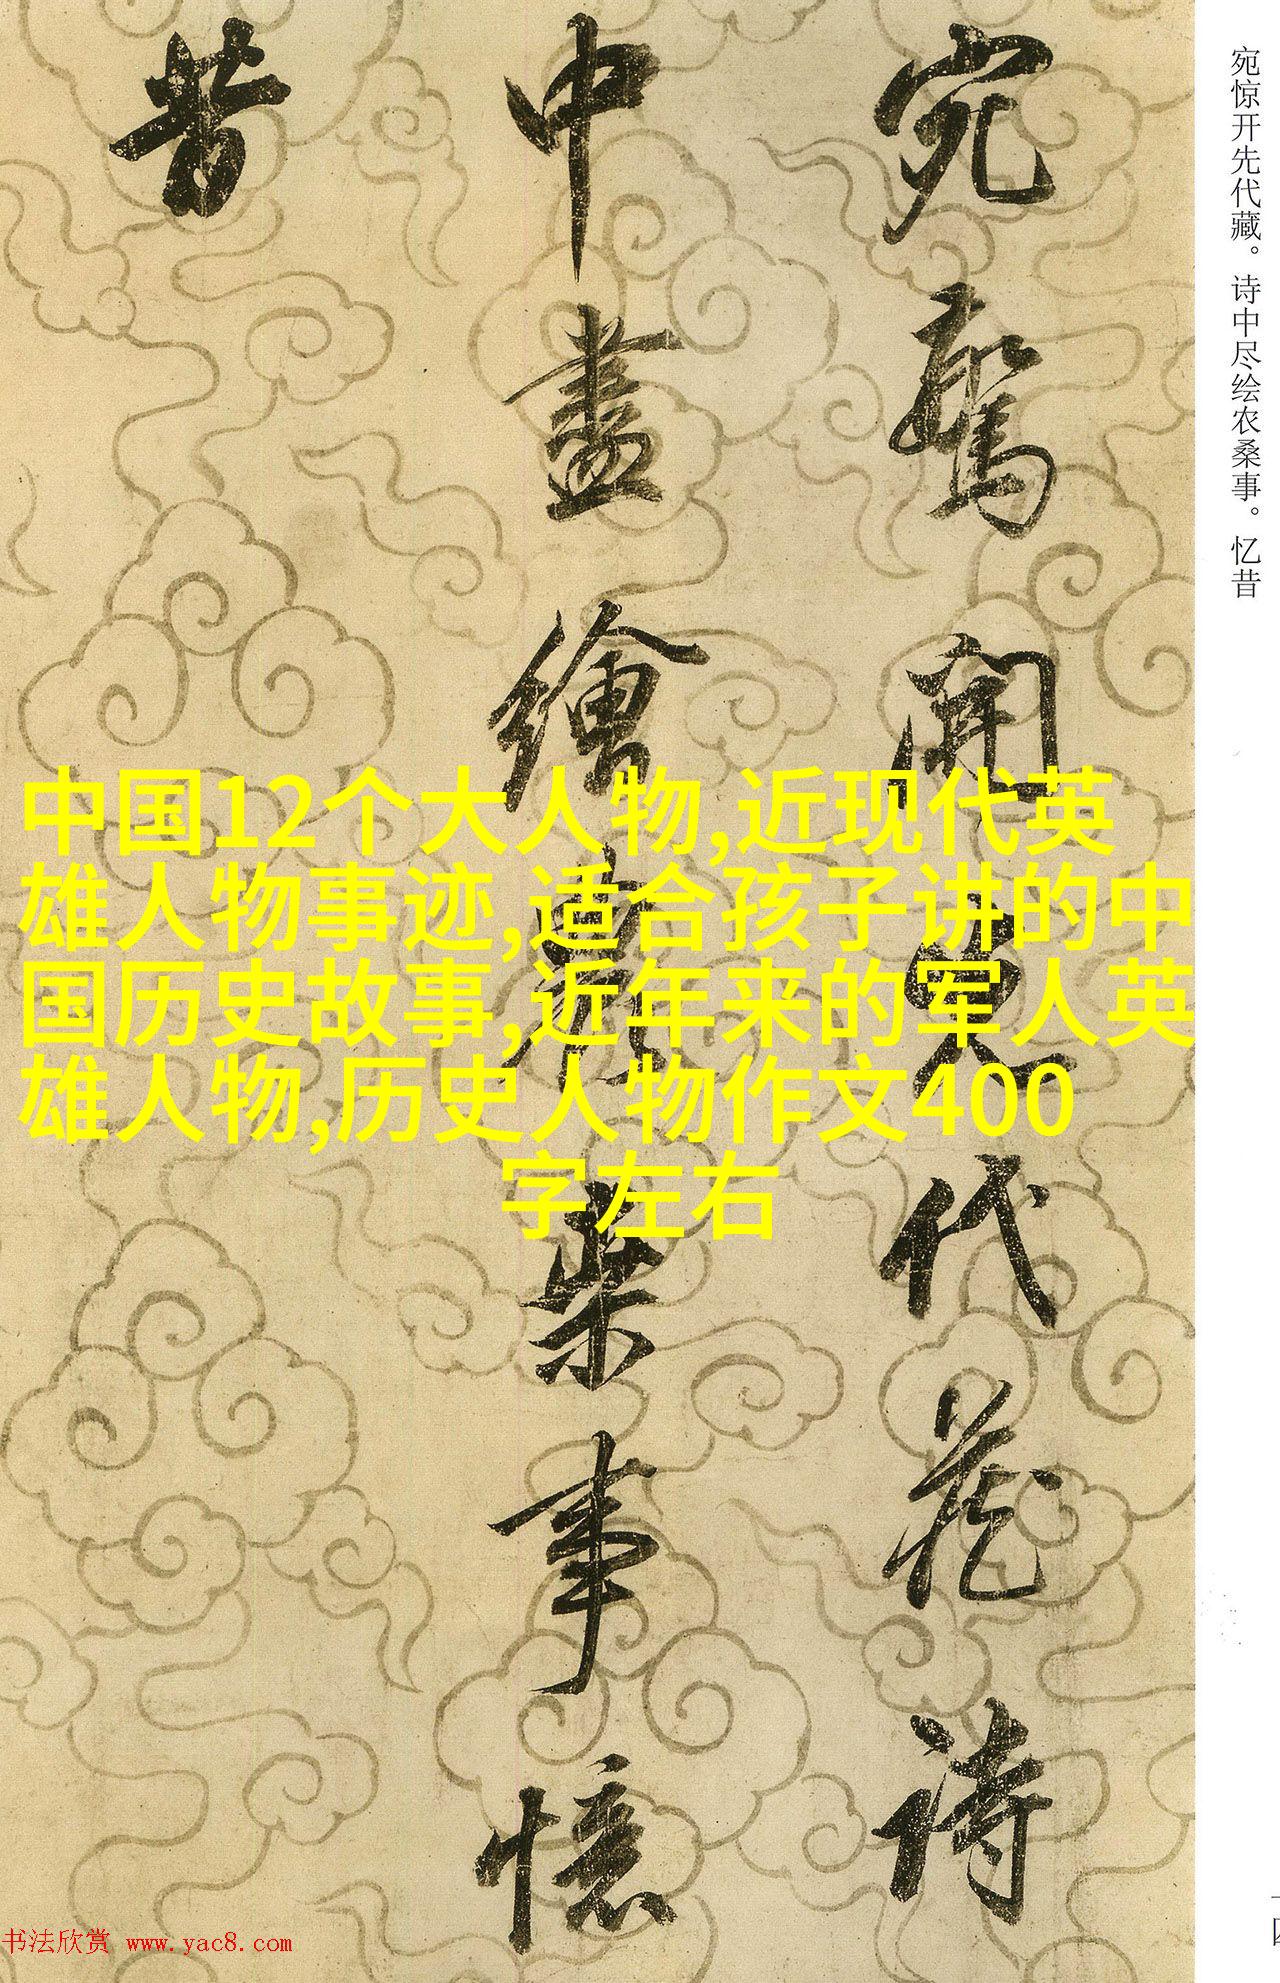 宛惊开先代藏。诗中尽绘农桑事。忆昔
宛驚開先代藏詩
中盡繪農桒事憶
昔
中国12个大人物,近现代英
雄人物事迹,适合孩子讲的中
国历史故事,近年来的军人英
雄人物,历史人物作文400
字左右
书法欣赏 www.yac8.com